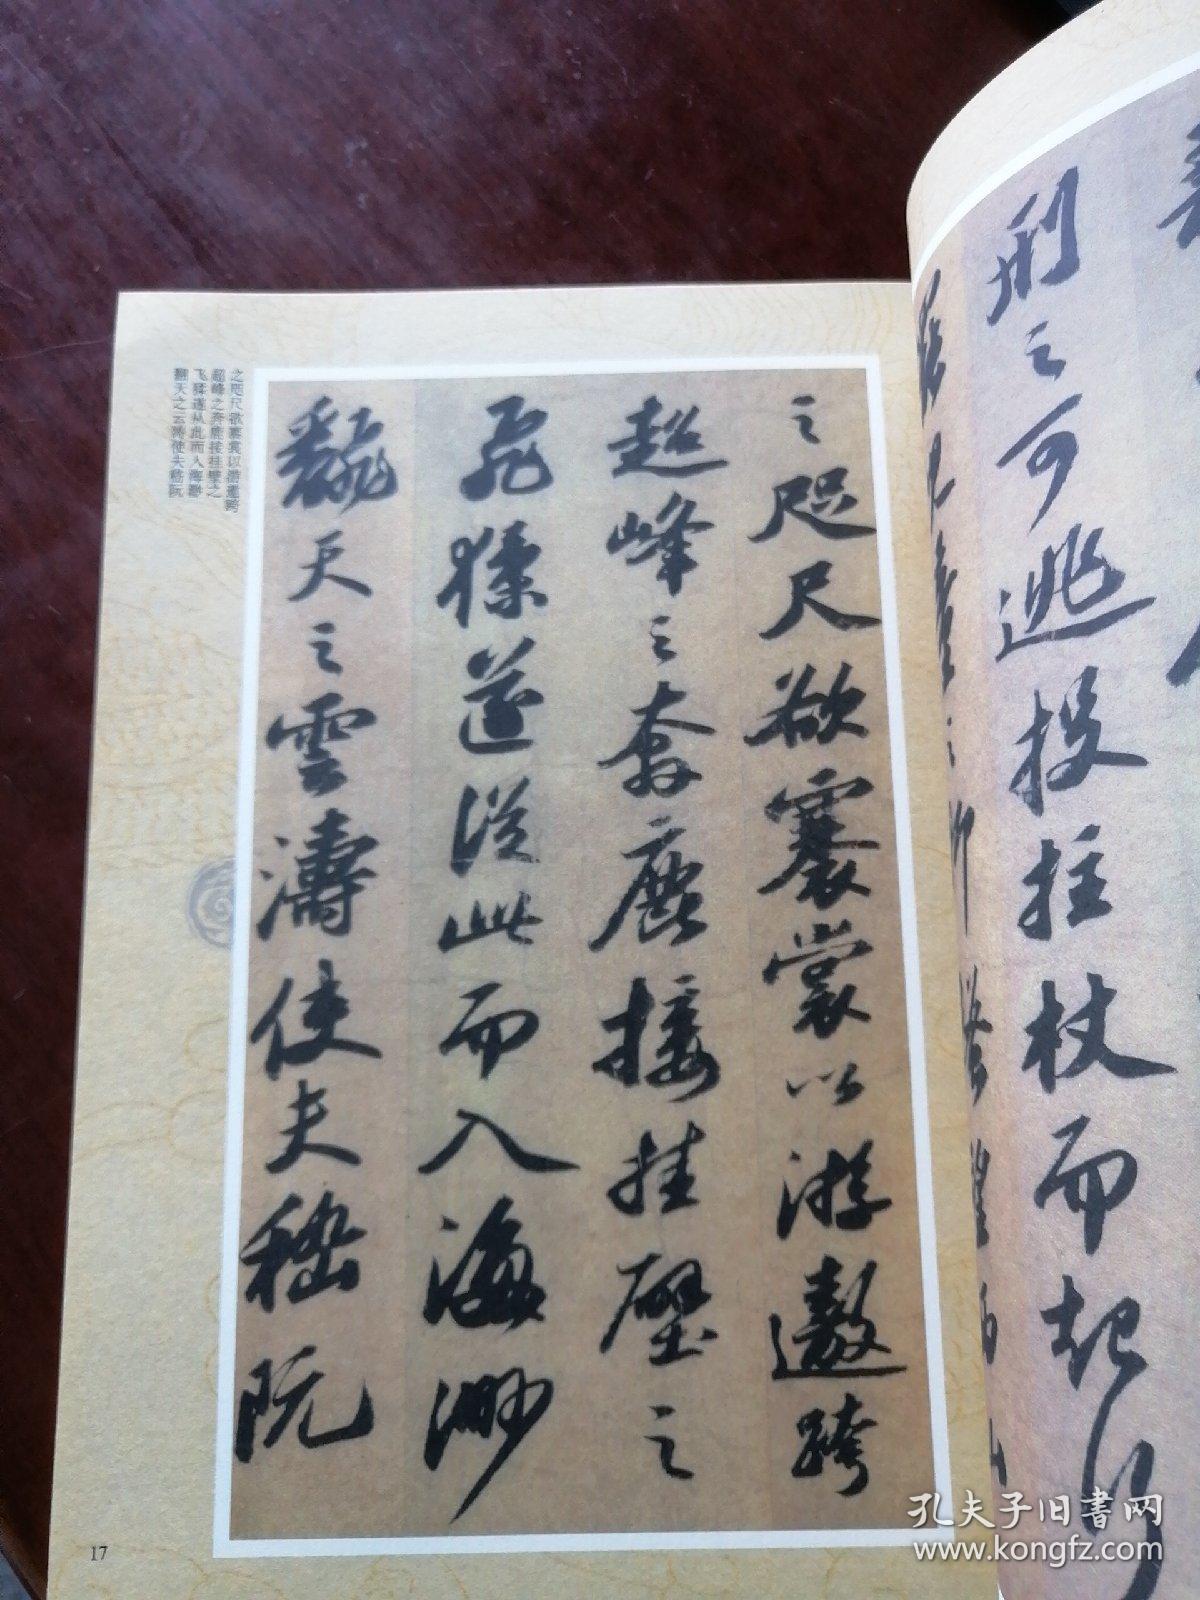 刑之可逃投拄杖而起行
之咫尺欲褰裳以游遨跨
超峰之奔鹿接挂壁之
飛猱遂從此而入海渺
翻天之雲濤使夫嵇阮
之咫尺欲褰裳以游遨跨
超峰之奔鹿接挂壁之
飞猱遂从此而入海渺
翻天之云涛使夫嵇阮
17
孔夫子旧书网
www.kongfz.com